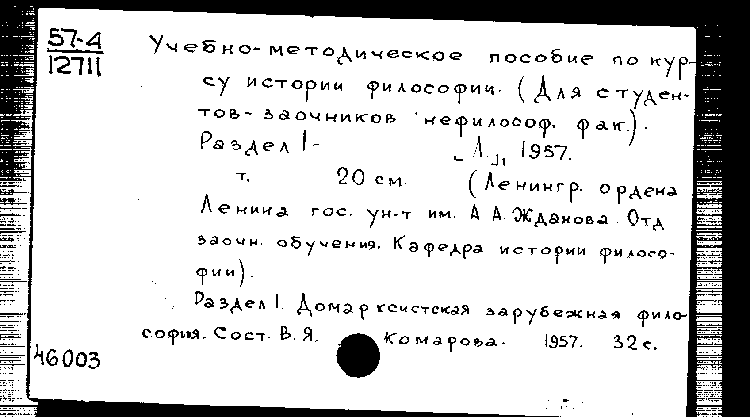 57-4
12711
Учебно-методическое пособие по кур-
су истории философии. (Для студен-
тов-заочников нефилософ. фак.).
Раздел I-
[Л.], 1957.
т. 20 см. (Ленингр. ордена
Ленина гос. ун-т им. А А. Жданова. Отд
заочн. обучения. Кафедра истории филосо-
фии).
Раздел I. Домарксистская зарубежная фило
софия. Сост. В. Я. Комарова. 1957. 32 с.
46003